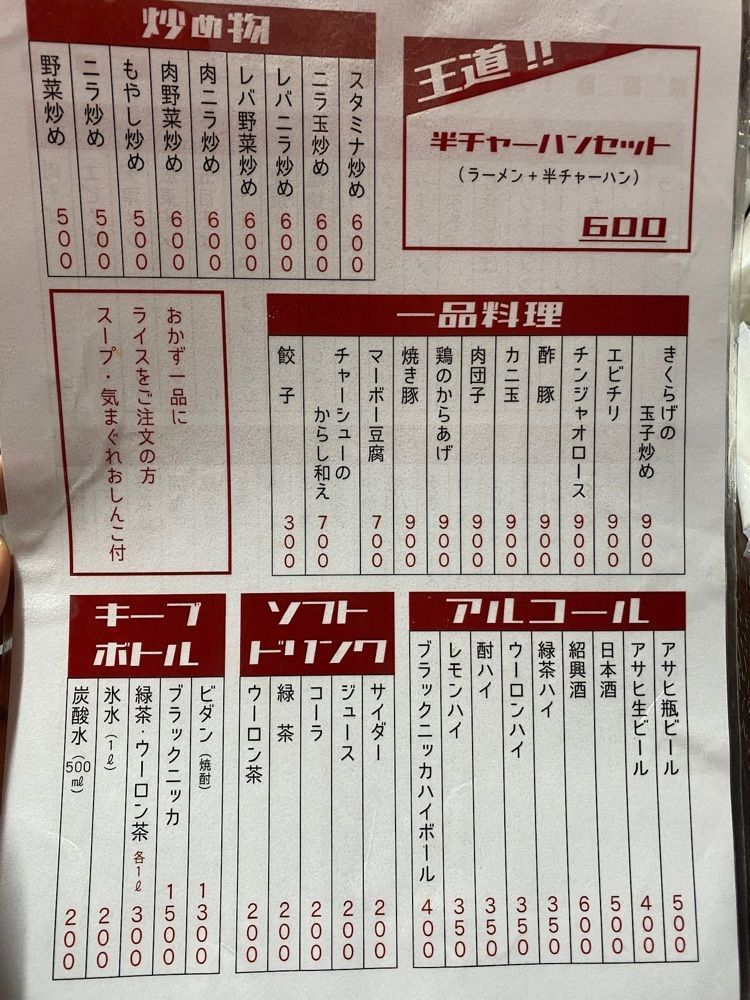 王道!!
半チャーハンセット
（ラーメン＋半チャーハン）
600
炒め物
スタミナ炒め 600
ニラ玉炒め 600
レバニラ炒め 600
レバ野菜炒め 600
肉ニラ炒め 600
肉野菜炒め 600
もやし炒め 500
ニラ炒め 500
野菜炒め 500
一品料理
きくらげの
玉子炒め 900
エビチリ 900
チンジャオロース 900
酢豚 900
カニ玉 900
肉団子 900
鶏のからあげ 900
焼き豚 900
マーボー豆腐 700
チャーシューの
からし和え 700
餃子 300
おかず一品に
ライスをご注文の方
スープ・気まぐれおしんこ付
アルコール
アサヒ瓶ビール 500
アサヒ生ビール 400
日本酒 500
紹興酒 600
緑茶ハイ 350
ウーロンハイ 350
酎ハイ 350
レモンハイ 350
ブラックニッカハイボール 400
ソフト
ドリンク
サイダー 200
ジュース 200
コーラ 200
緑茶 200
ウーロン茶 200
キープ
ボトル
ビダン（焼酎） 1300
ブラックニッカ 1500
緑茶・ウーロン茶 各1ℓ 300
氷水（1ℓ） 200
炭酸水（500㎖） 200